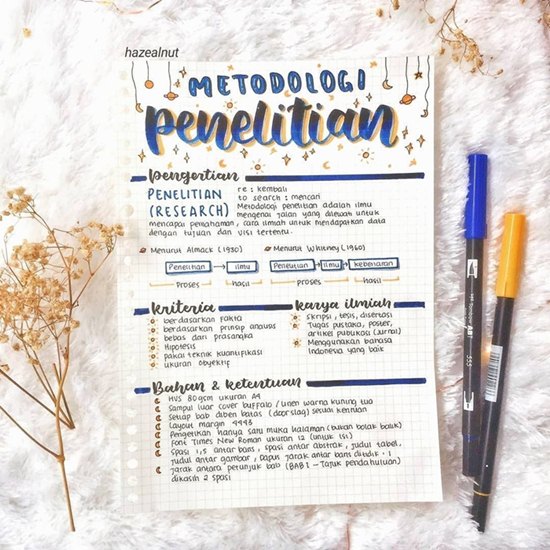 hazealnut
METODOLOGI
penelitian
pengertian
PENELITIAN
(RESEARCH)
re : kembali
to search : mencari
Metodologi penelitian adalah ilmu
mengenai jalan yang dilewati untuk
mencapai pemahaman, cara ilmiah untuk mendapatkan data
dengan tujuan dan visi tertentu.
Menurut Almack (1930)
Penelitian ilmu
proses hasil
Menurut Whitney (1960)
Penelitian ilmu kebenaran
proses hasil
kriteria
berdasarkan fakta
berdasarkan prinsip analisis
bebas dari prasangka
Hipotesis
pakai teknik kuantifikasi
ukuran obyektif
karya ilmiah
skripsi, tesis, disertasi
Tugas pustaka, poster,
artikel publikasi (jurnal)
Menggunakan bahasa
Indonesia yang baik
Bahan & ketentuan
HVS 80gsm ukuran A4
Sampul luar cover buffalo / linen warna kuning tua
Setiap bab diberi batas (doorslag) sesuai
Layout margin 4433
Pengetikan hanya satu muka halaman (bukan bolak balik)
Font Times New Roman ukuran 12 (untuk isi)
Spasi 1,5 antar baris, spasi antar abstrak, judul tabel,
judul antar gambar, Dapus jarak antar baris : 1
Jarak antara petunjuk bab (BAB I - Tajuk pendahuluan)
dikasih 2 spasi
ABT
555